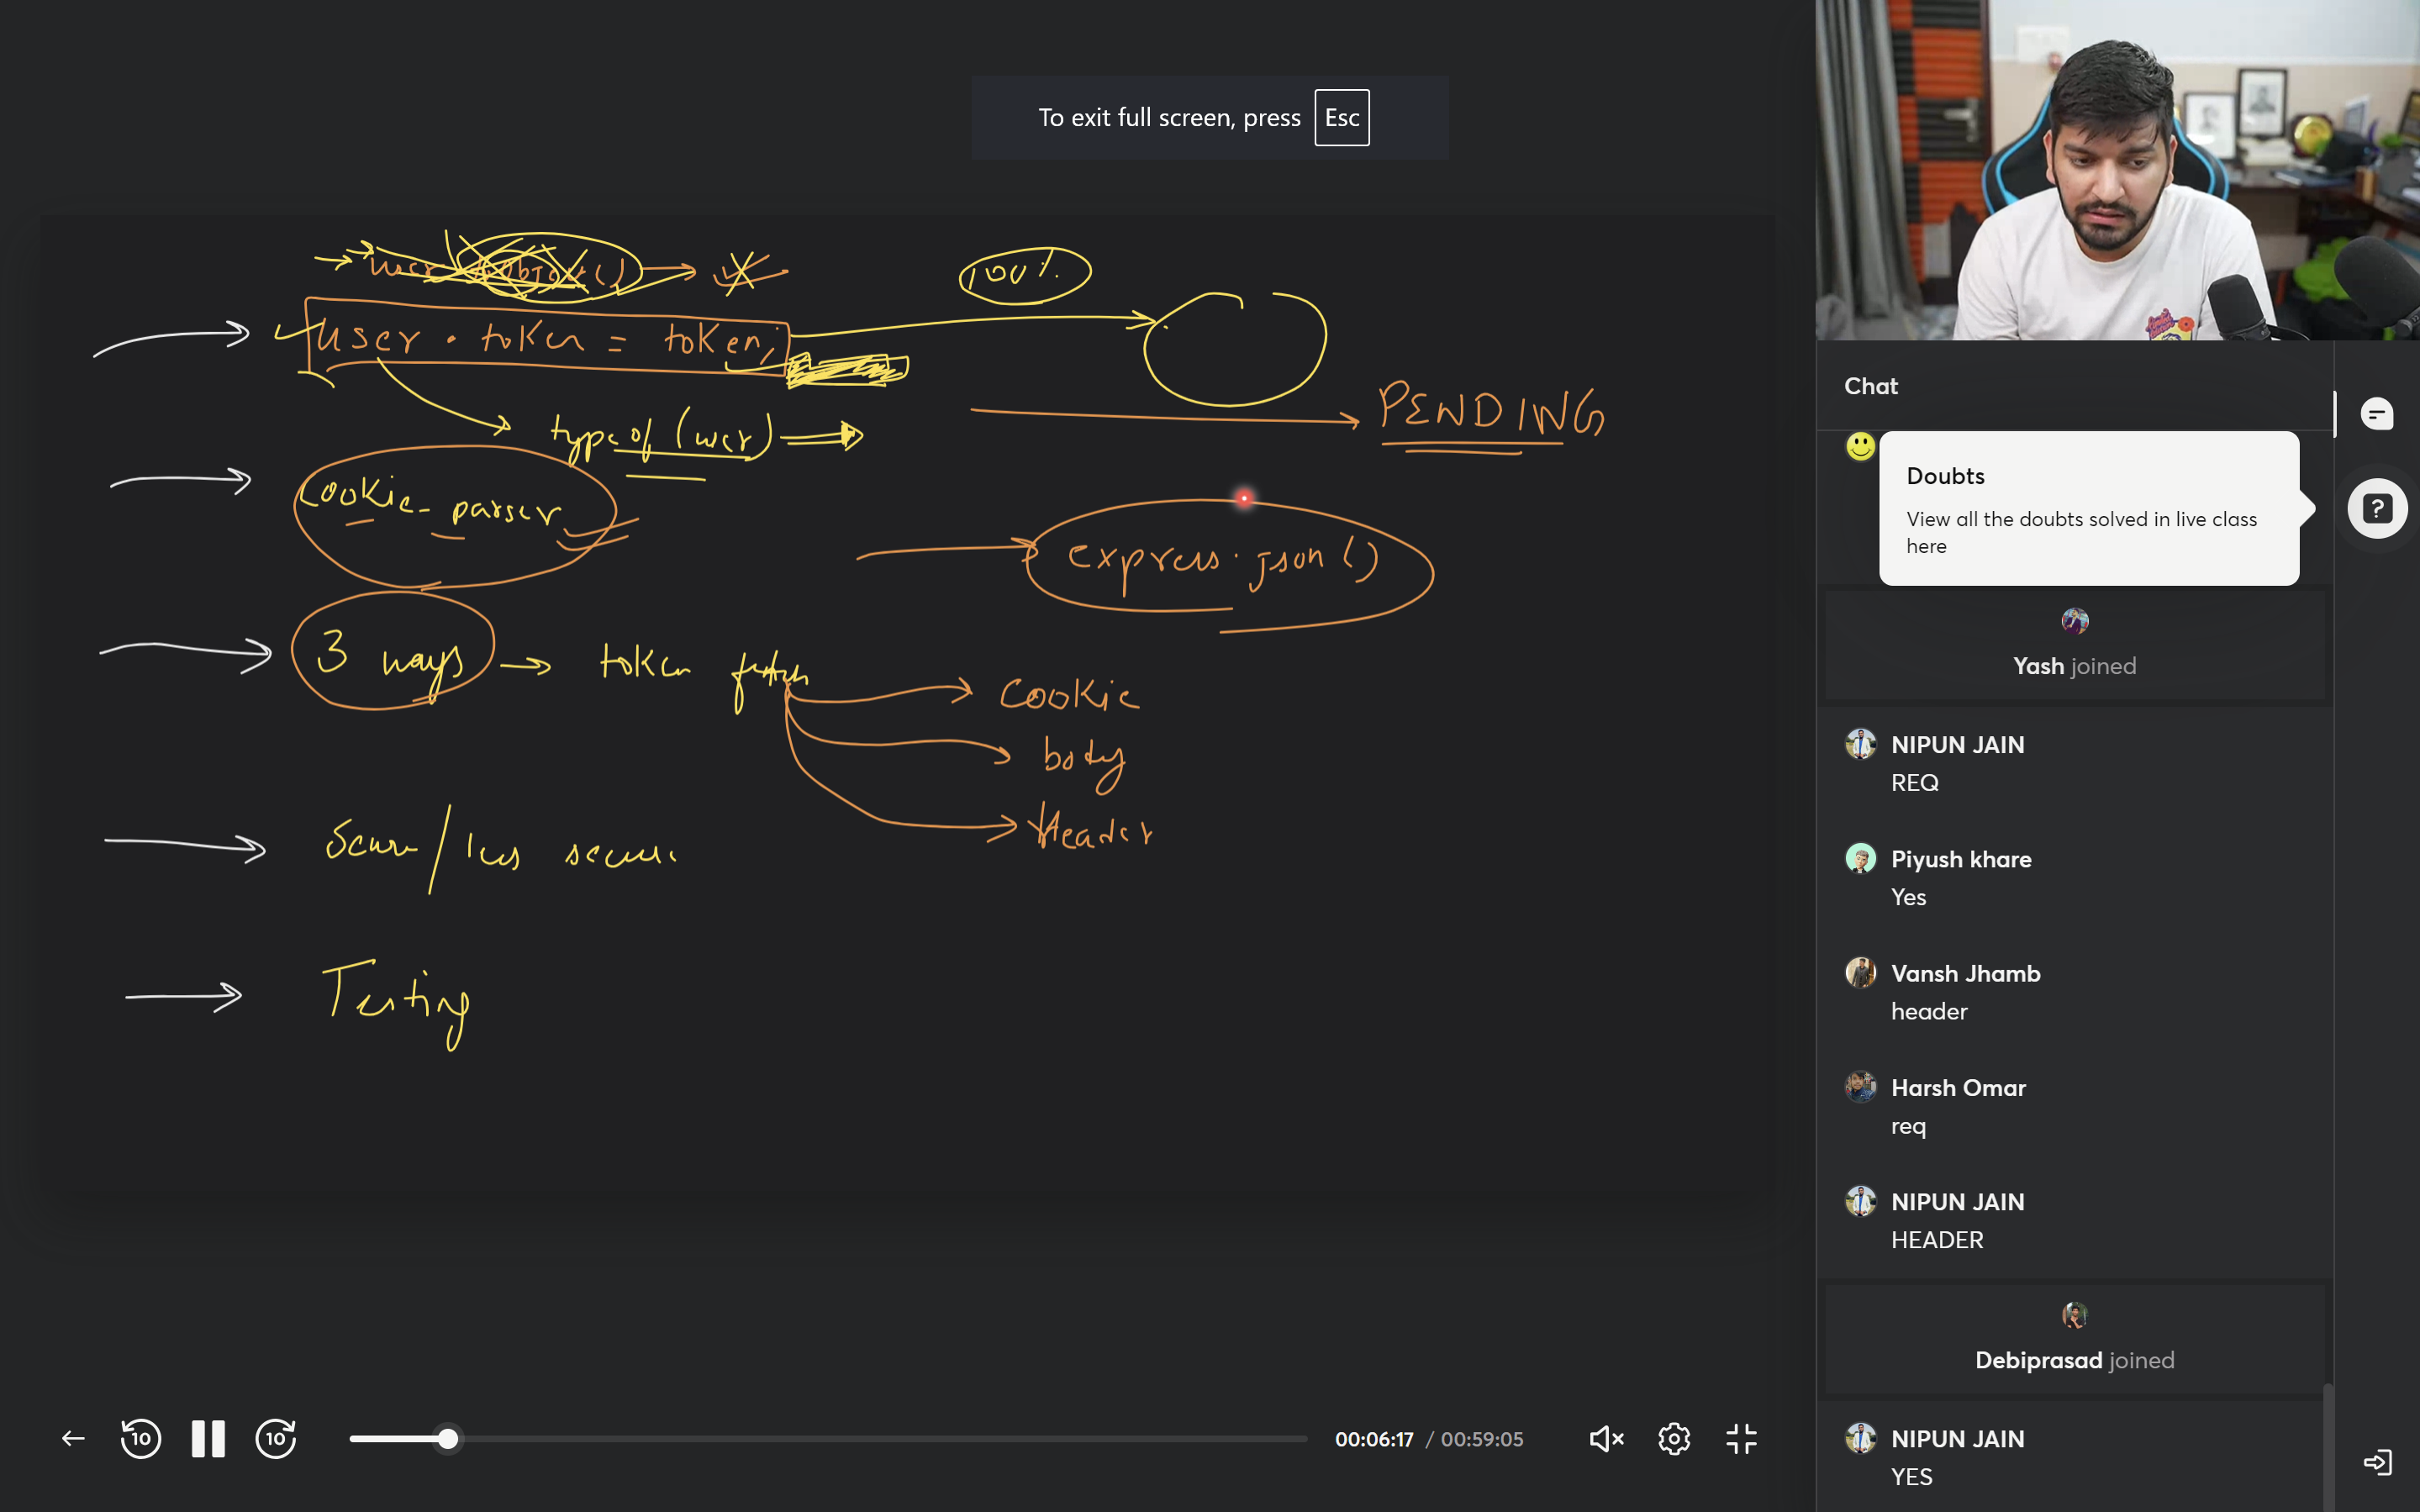 To exit full screen, press Esc
100%
user . token = token;
PENDING
type of (user)
cookie - parser
express . json ()
3 ways → token fetch
cookie
body
Header
Secure / less secure
Testing
00:06:17 / 00:59:05
10
10
Chat
Doubts
View all the doubts solved in live class
here
?
Yash joined
NIPUN JAIN
REQ
Piyush khare
Yes
Vansh Jhamb
header
Harsh Omar
req
NIPUN JAIN
HEADER
Debiprasad joined
NIPUN JAIN
YES